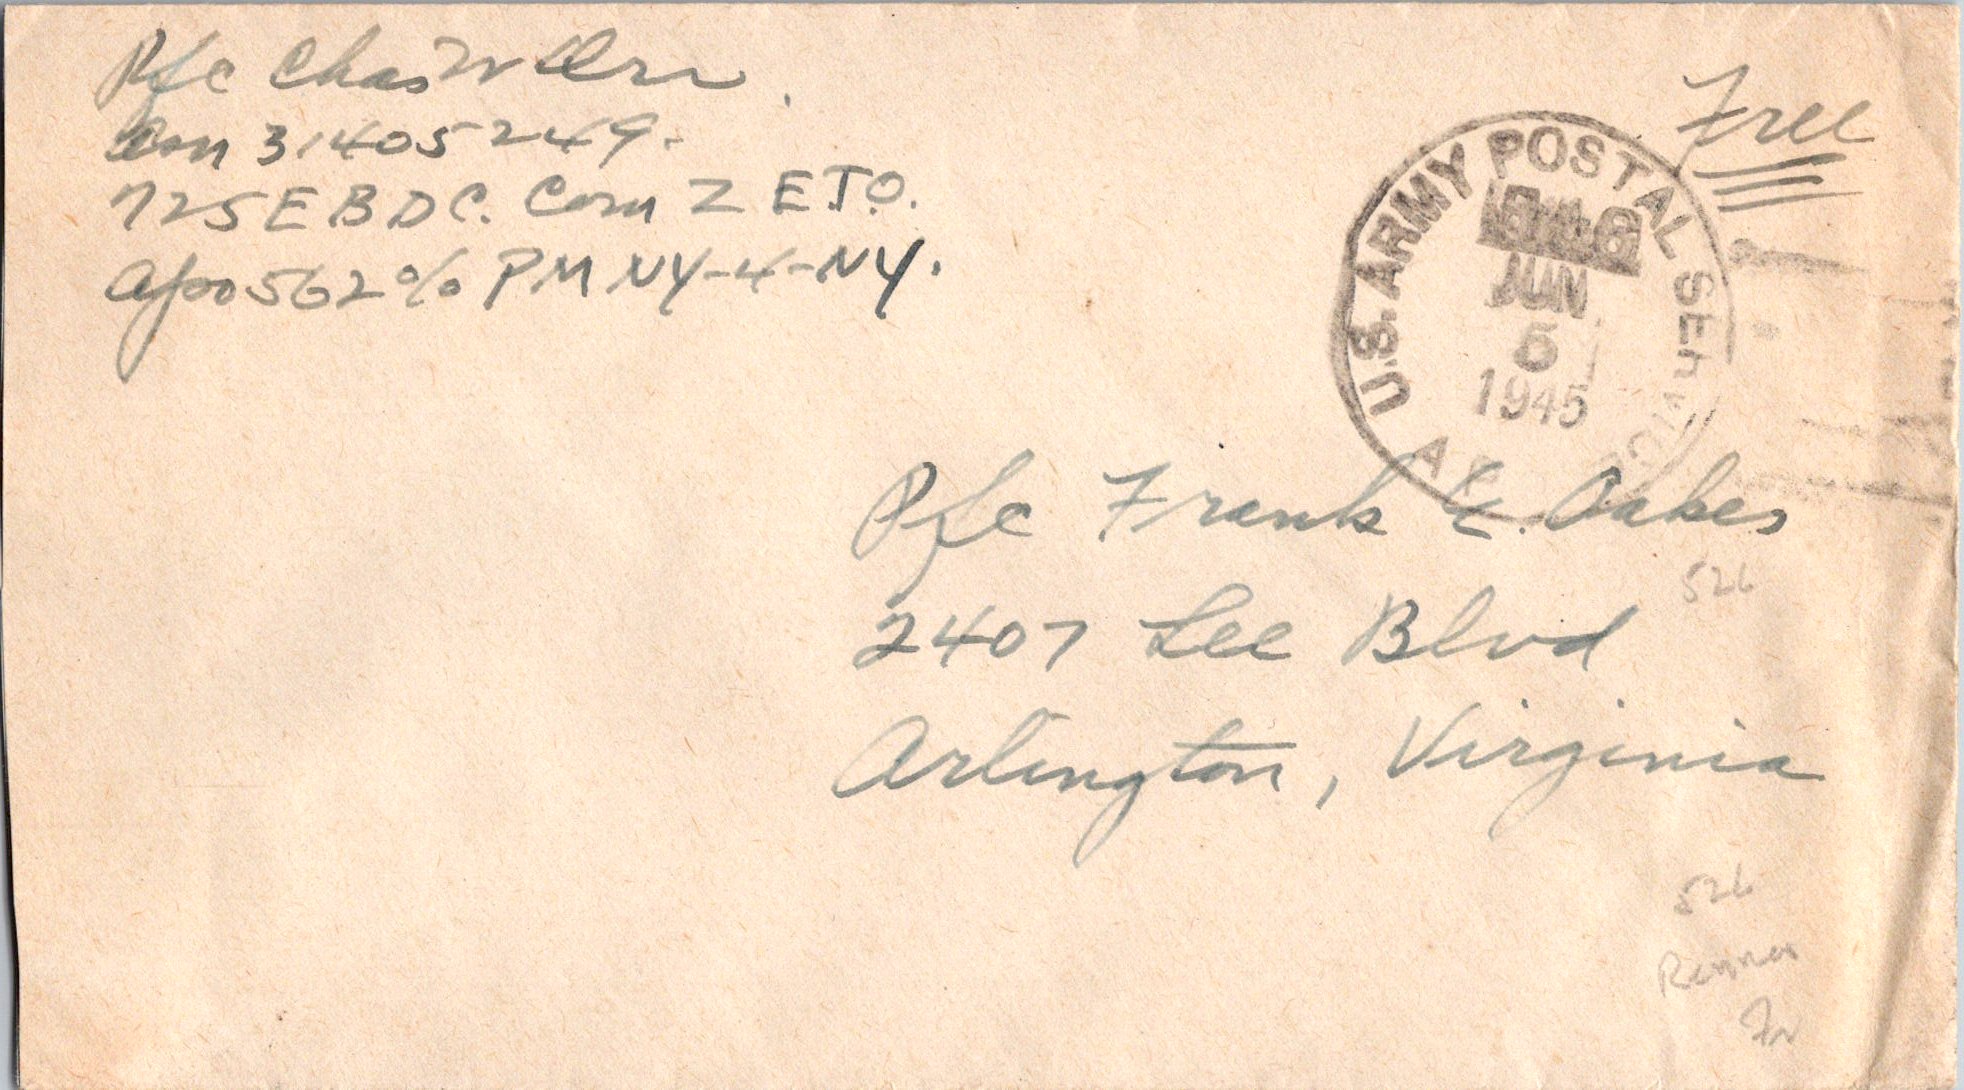 Pfc Chas W Orr
Asn 31405249.
725 E B D C. Com Z E.T.O.
Apo 562 % P M NY-4-NY.
Free
U.S. ARMY POSTAL SERVICE
JUN
5
1945
A P
Pfc Frank E. Oakes
526
2407 Lee Blvd
Arlington, Virginia
526